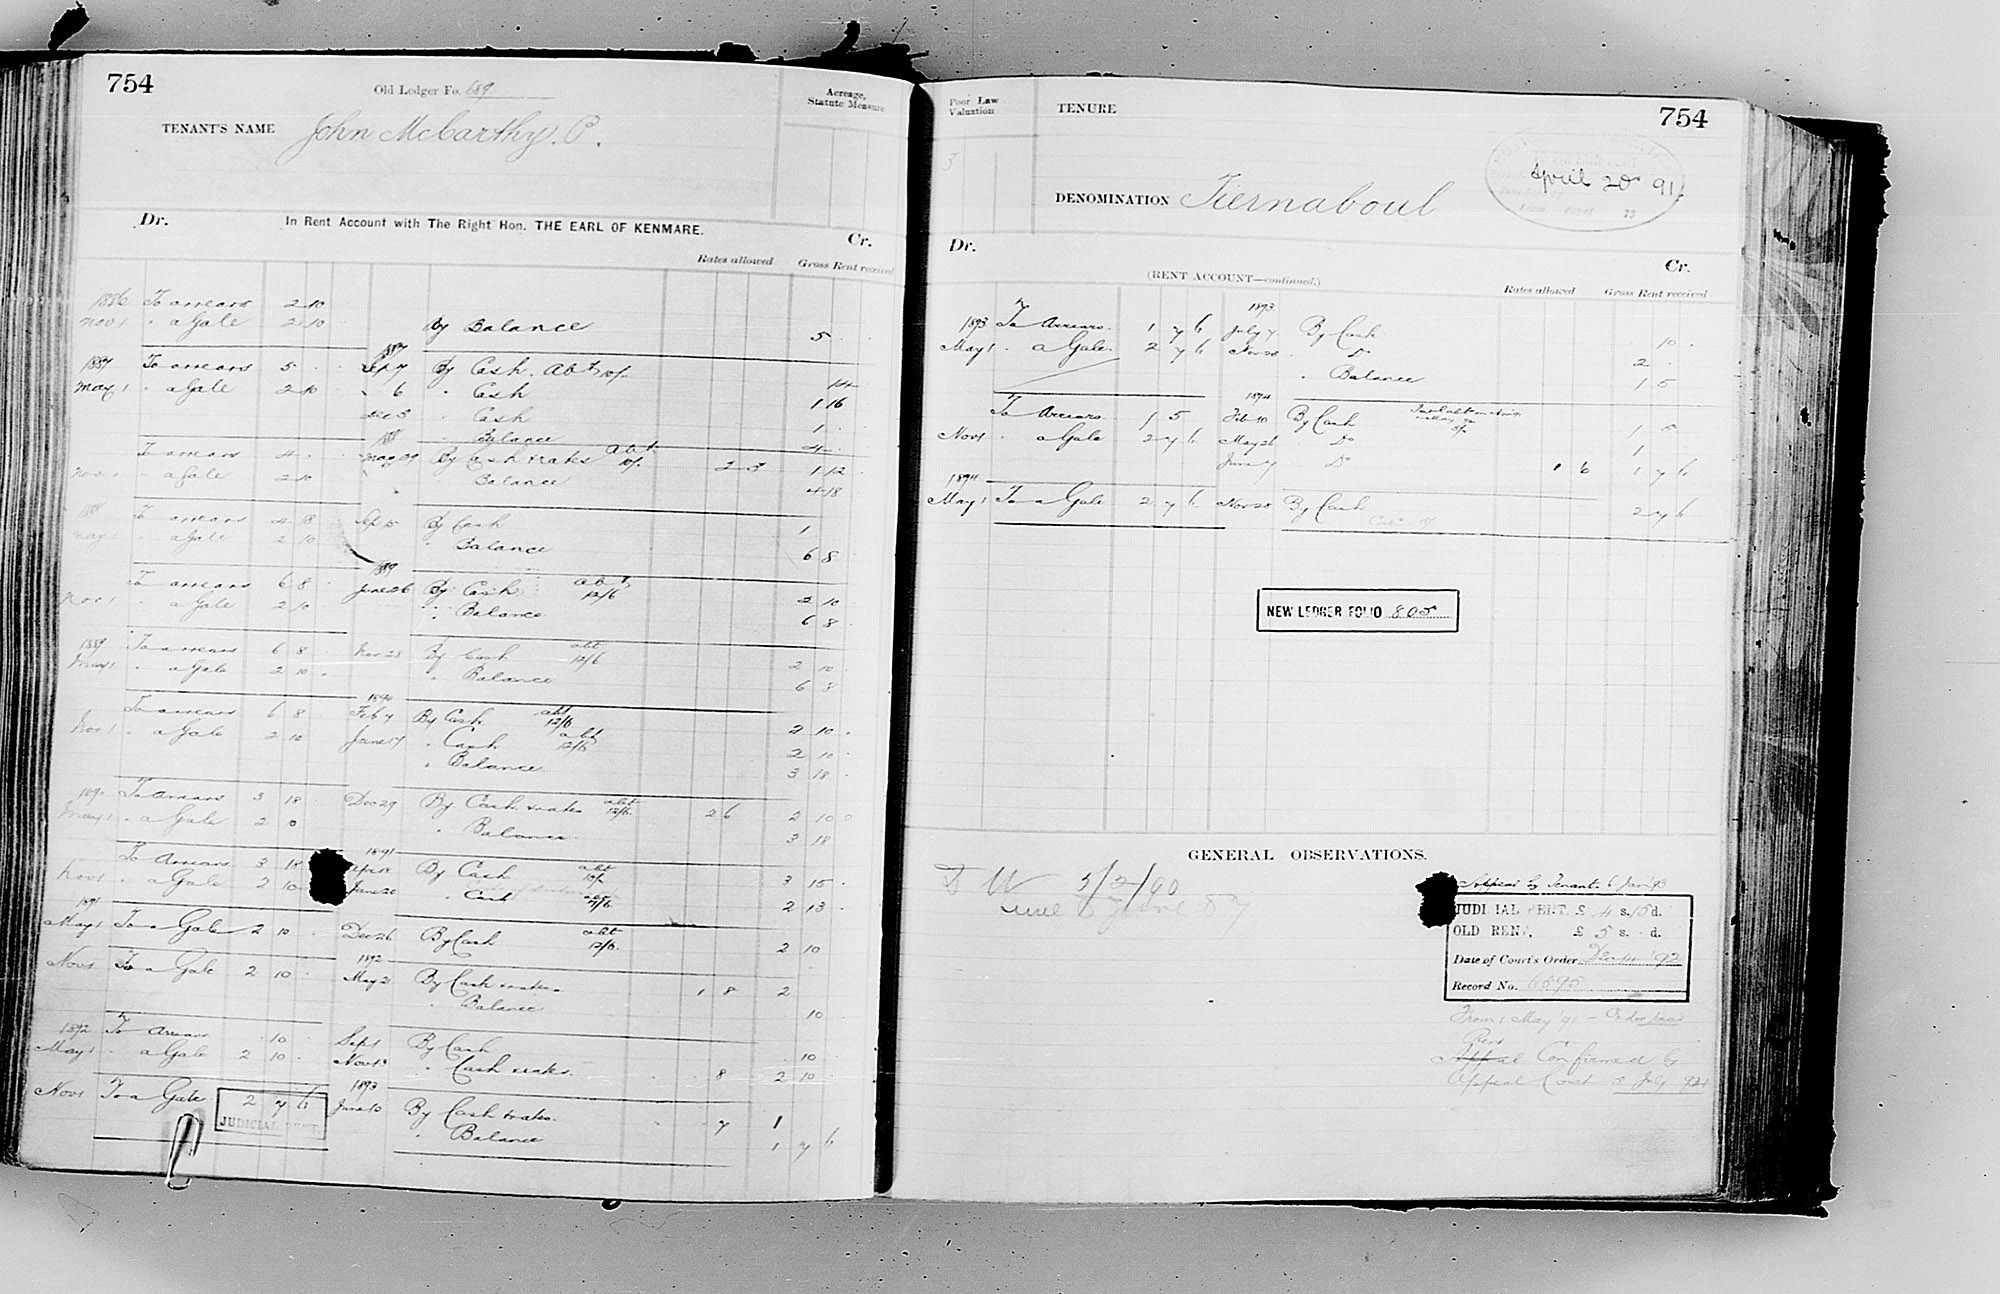 754
Old Ledger Fo. 689
Acreage, Statute Measure
TENANT'S NAME John McCarthy. P.
Dr. In Rent Account with The Right Hon. THE EARL OF KENMARE. Cr.
Rates allowed Gross Rent received
1886 To arrears 2 10
Nov 1 " a Gale 2 10 By Balance 5
1887
1887 To arrears 5 Sep 7 By Cash. Abt 10/-
May 1 " a Gale 2 10 " 6 " Cash 1 16
Dec 5 " Cash 1
" Balance 4
To arrears 4 May 29 By Cash & rates abt 10/- 2 3 1 12
Nov 1 " a Gale 2 10 " Balance 4 18
To arrears 4 18 Sep 15 By Cash 1
May 1 " a Gale 2 10 " Balance 6 8
1889
To arrears 6 8 June 26 By Cash abt 12/6 2 10
Nov 1 " a Gale 2 10 " Balance 6 8
1889 To arrears 6 8 Nov 28 By Cash abt 12/6 2 10
May 1 " a Gale 2 10 " Balance 6 8
1890
To arrears 6 8 Feb 7 By Cash abt 12/6 2 10
Nov 1 " a Gale 2 10 June 17 " Cash abt 12/6 2 10
" Balance 3 18
1890 To arrears 3 18 Dec 29 By Cash & rates abt 12/6 2 6 2 10 0
May 1 " a Gale 2 10 " Balance 3 18
1891
To Arrears 3 18 By Cash abt 3 15
Nov 1 " a Gale 2 10 June 20 " Cash 2 13
1891
May 1 To a Gale 2 10 Dec 26 By Cash abt 12/6 2 10
1892
Nov 1 To a Gale 2 10 May 21 By Cash & rates 1 8 2
" Balance 10
1892 To Arrears 10 Sep 1 By Cash 10
May 1 " a Gale 2 10 Nov 13 " Cash & rates 8 2 10
1893
Nov 1 To a Gale 2 7 6 June 10 By Cash & rates 7 1
JUDICIAL RENT. " Balance 1 7 6
Poor Law Valuation
TENURE
754
April 20 91
DENOMINATION Tiernaboul
Dr. Cr.
(RENT ACCOUNT—continued.)
Rates allowed Gross Rent received
1893
1893 To Arrears 1 7 6 July 7 By Cash 10
May 1 " a Gale 2 7 6 Nov 20 " Do 2
" Balance 1 5
1894
To Arrears 1 5 Feb 10 By Cash 1 5
Nov 1 " a Gale 2 7 6 May 26 " Do 1
June 7 " Do 1 6 1 7 6
1894
May 1 To a Gale 2 7 6 Nov 28 By Cash 2 7 6
NEW LEDGER FOLIO 805
GENERAL OBSERVATIONS.
5/2/90
June 87
Appeal by Tenant 6 Jan '93
JUDICIAL RENT. £ 4 s. 15 d.
OLD RENT. £ 5 s. - d.
Date of Court's Order Dec 14 '92
Record No. 6595
From 1 May '91 -
Appeal Confirmed by
Appeal Court July 94